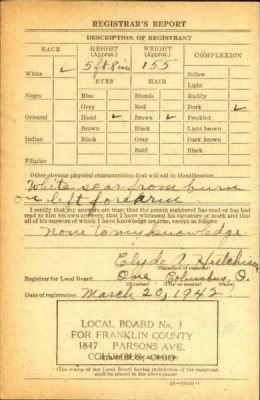 REGISTRAR'S REPORT
DESCRIPTION OF REGISTRANT
RACE HEIGHT (Approx.) WEIGHT (Approx.) COMPLEXION
White ✓ 5 ft. 8 in 155 Sallow
EYES HAIR Light
Negro Blue Blonde Ruddy
Gray Red Dark ✓
Oriental Hazel ✓ Brown ✓ Freckled
Brown Black Light brown
Indian Black Gray Dark brown
Bald Black
Filipino
Other obvious physical characteristics that will aid in identification
White scar from burn
on left forearm
I certify that my answers are true; that the person registered has read or has had
read to him his own answers; that I have witnessed his signature or mark and that
all of his answers of which I have knowledge are true, except as follows:
None to my knowledge
Clyde A. Hutchison
(Signature of registrar)
Registrar for Local Board One Columbus, O.
Date of registration March 20, 1942
LOCAL BOARD No. 1
FOR FRANKLIN COUNTY
1847 PARSONS AVE.
COLUMBUS, OHIO
(The stamp of the Local Board having jurisdiction of the registrant
shall be placed in the above space)